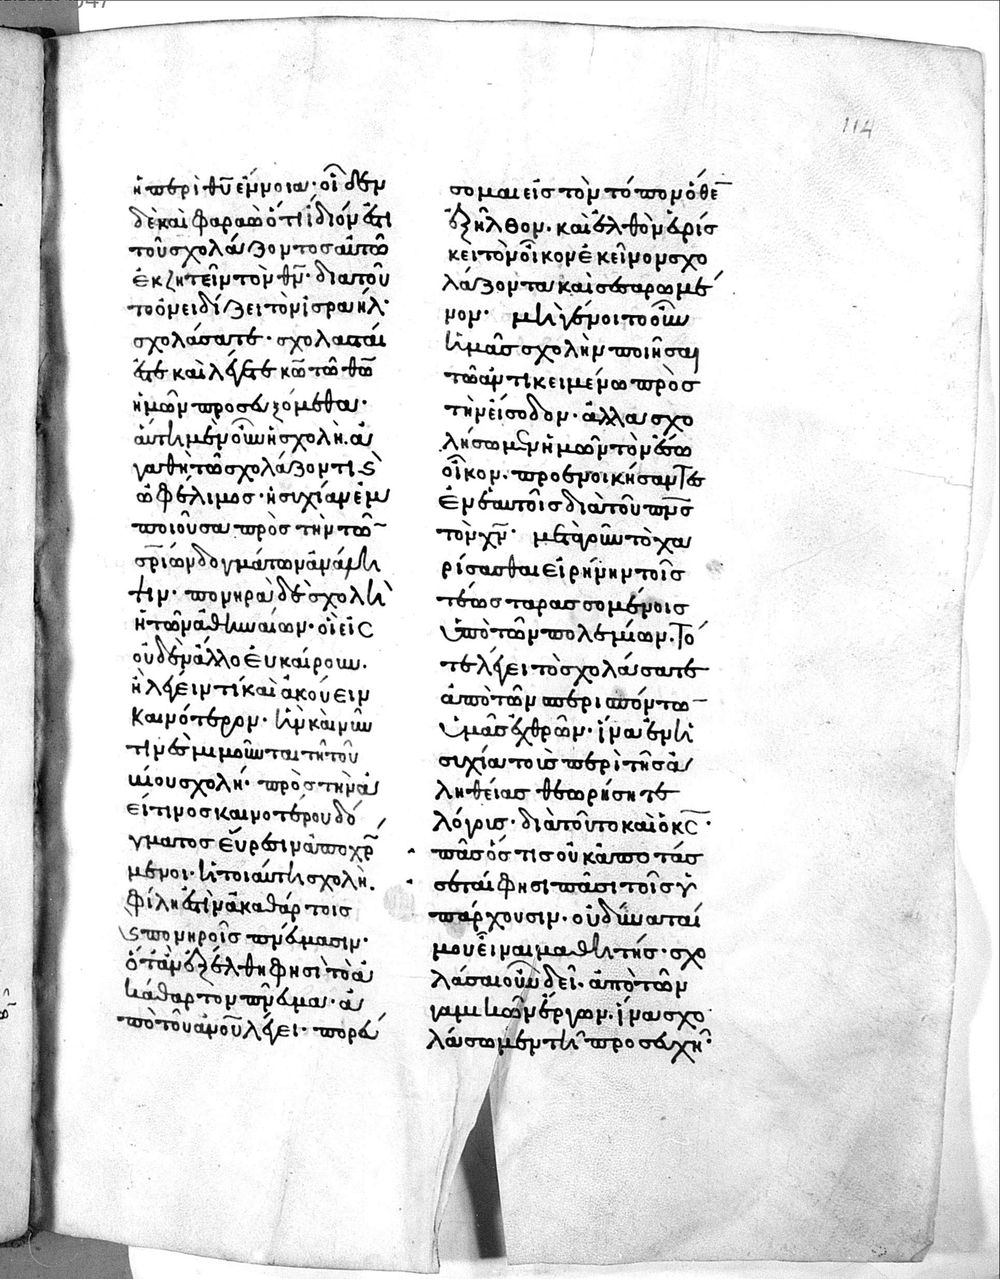 114
ἢ περὶ θῦ ἔννοια· οἶδεν
δὲ καὶ φαραὼ ὅτι ἴδιόν ἐστι
τοῦ σχολάζοντος αὐτῶ
ἐκζητεῖν τὸν θν· διὰ τοῦ
το ὀνειδίζει τὸν ἰσραήλ·
σχολάσατε· σχολασταί
ἐστε καὶ λέγετε κω τῶ θω
ἡμῶν προσευξόμεθα·
αὕτη μὲν οὖν ἡ σχολὴ ἀ
γαθὴ τῶ σχολάζοντι ϗ
ὠφέλιμος· ἡσυχίαν ἐμ
ποιοῦσα πρὸς τὴν τῶ
σρίων δογμάτων ἀνάλη
ψιν· πονηρὰ δὲ σχολὴ
ἡ τῶν ἀθηναίων· οἳ εἰς
οὐδὲν ἄλλο εὐκαίρουν.
ἢ λέγειν τί καὶ ἀκούειν
καινότερον· ἣν καὶ νῦν
τινὲς μιμοῦνται τῆ τοῦ
βίου σχολῆ· πρὸς τὴν ἀ
εί τινος καινοτέρου δό
γματος εὕρεσιν ἀποχρώ
μενοι· ἡ τοιαύτη σχολὴ.
φίλη ἐστὶν ἀκαθάρτοις
ϗ πονηροῖς πνεύμασιν·
ὅταν ἐξέλθη φησὶ τὸ ἀ
κάθαρτον πνεῦμα· ἀ
πὸ τοῦ ανοῦ λέγει· πορεύ
σομαι εἰς τὸν τόπον ὅθε
ἐξῆλθον. καὶ ἐλθὸν εὑρίς
κει τὸν οἶκον ἐκεῖνον σχο
λάζοντα καὶ σεσαρωμέ
νον· μὴ γένοιτο οὖν
ἡμᾶς σχολὴν ποιῆσαι
τῶ ἀντικειμένω πρὸς
τὴν εἴσοδον· ἀλλὰ σχο
λήσωμεν ἡμῶν τὸν ἔσω
οἶκον. προενοικήσαντες
ἐν ἑαυτοῖς διὰ τοῦ πνς
τὸν χν· μετὰ γοῦν τὸ χα
ρίσασθαι εἰρήνην τοῖς
τέως ταρασσομένοις
ὑπὸ τῶν πολεμίων. τό
τε λέγει τὸ σχολάσατε
ἀπὸ τῶν περισπόντω
ὑμᾶς ἐχθρῶν· ἵνα ἐν ἡ
συχία τοὶς περὶ τῆς ἀ
ληθείας θεωρήσητε
λόγοις· διὰ τοῦτο καὶ ὁ κς·
πᾶς ὅς τις οὐκ ἀποτάς
σεταί φησι πᾶσι τοῖς ὑ
πάρχουσιν· οὐ δύναταί
μου εἶναι μαθητής· σχο
λάσαι οὖν δεῖ· ἀπὸ τῶν
γαμικῶν ἔργων. ἵνα σχο
λάσωμεν τῆ προσευχῆ·